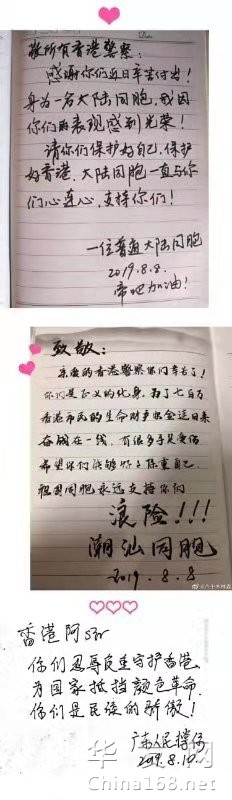 Date
敬所有香港警察：
感谢你们近日辛苦付出！
身为一名大陆同胞，我因
你们的表现感到光荣！
请你们保护好自己，保护
好香港，大陆同胞一直与你
们心连心，支持你们！
一位普通大陆同胞
2019.8.8.
帝吧加油！
致敬：
亲爱的香港警察你们辛苦了！
你们是正义的化身，为了七百万
香港市民的生命财产安全连日来
奋战在一线，有很多手足受伤
希望你们能够好好保重自己
祖国同胞永远支持你们
浪险！！！
潮汕同胞
2019.8.8
香港阿Sir
你们忍辱负重守护香港，
为国家抵挡颜色革命，
你们是民族的骄傲！
广东人民撑你
2019.8.10
华人网
China168.net